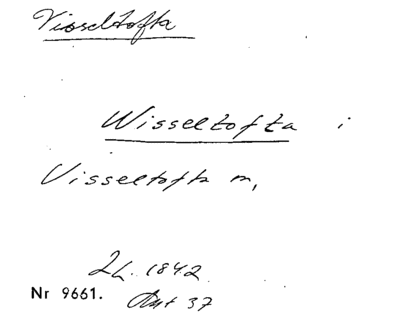 Visseltofta
Wisseltofta i
Visseltofta m,
1842
Nr 9661. 37